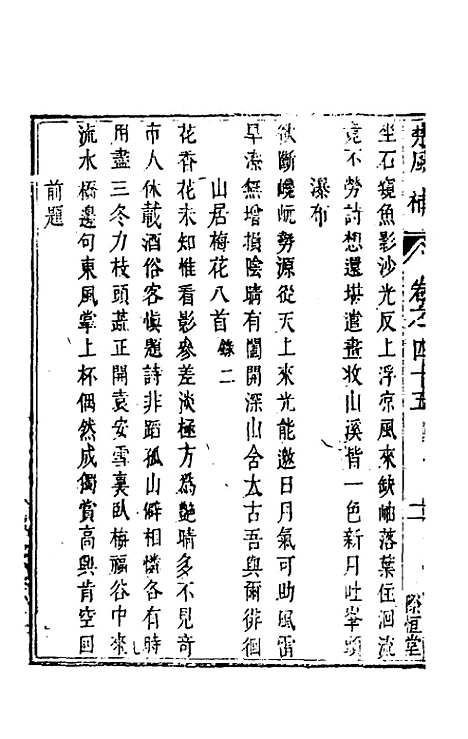 楚風補
卷之四十五
際恒堂
坐石窺魚影沙光反上浮凉風來缺岫落葉住洄流
竟不勞詩想還堪遣畫收山溪皆一色新月吐峯頭
瀑布
欲斷巉岏勢源從天上來光能邀日月氣可助風雷
旱澇無增損陰晴有闔開深山含太古吾與爾徘徊
山居梅花八首錄二
花香花未知惟看影參差淡極方爲艷晴多不見奇
市人休載酒俗客愼題詩非蹈孤山僻相憐各有時
用盡三冬力枝頭蕋正開袁安雪裏臥梅福谷中來
流水橋邊句東風掌上杯偶然成獨賞高興肯空回
前題